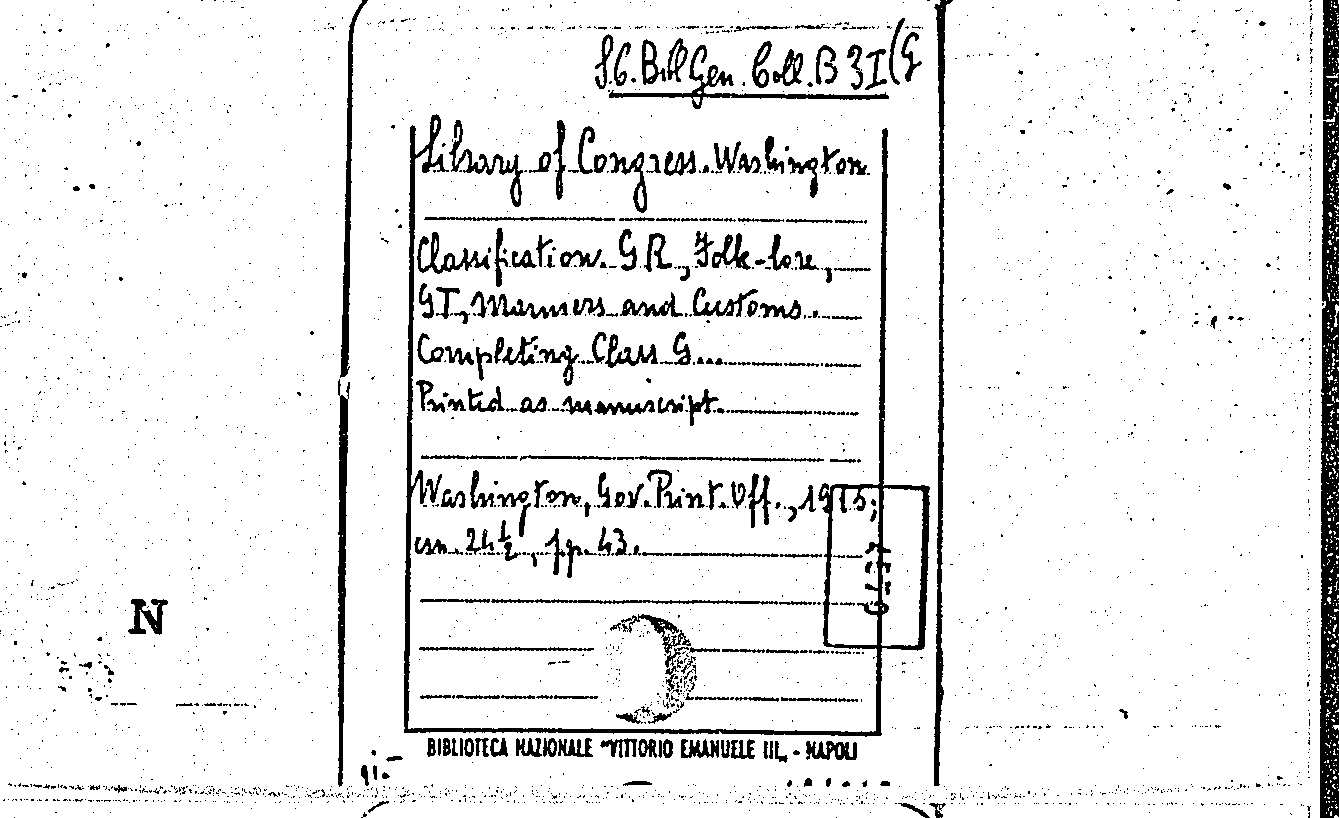 S.C. Bibl Gen. Coll. B 3I (G
Library of Congress. Washington
Classification. GR, Folk-lore,
GT, Manners and Customs.
Completing Class G...
Printed as manuscript.
Washington, Gov. Print. Off., 1915;
cm. 24 1/2, pp. 43.
N
BIBLIOTECA NAZIONALE "VITTORIO EMANUELE III„ - NAPOLI